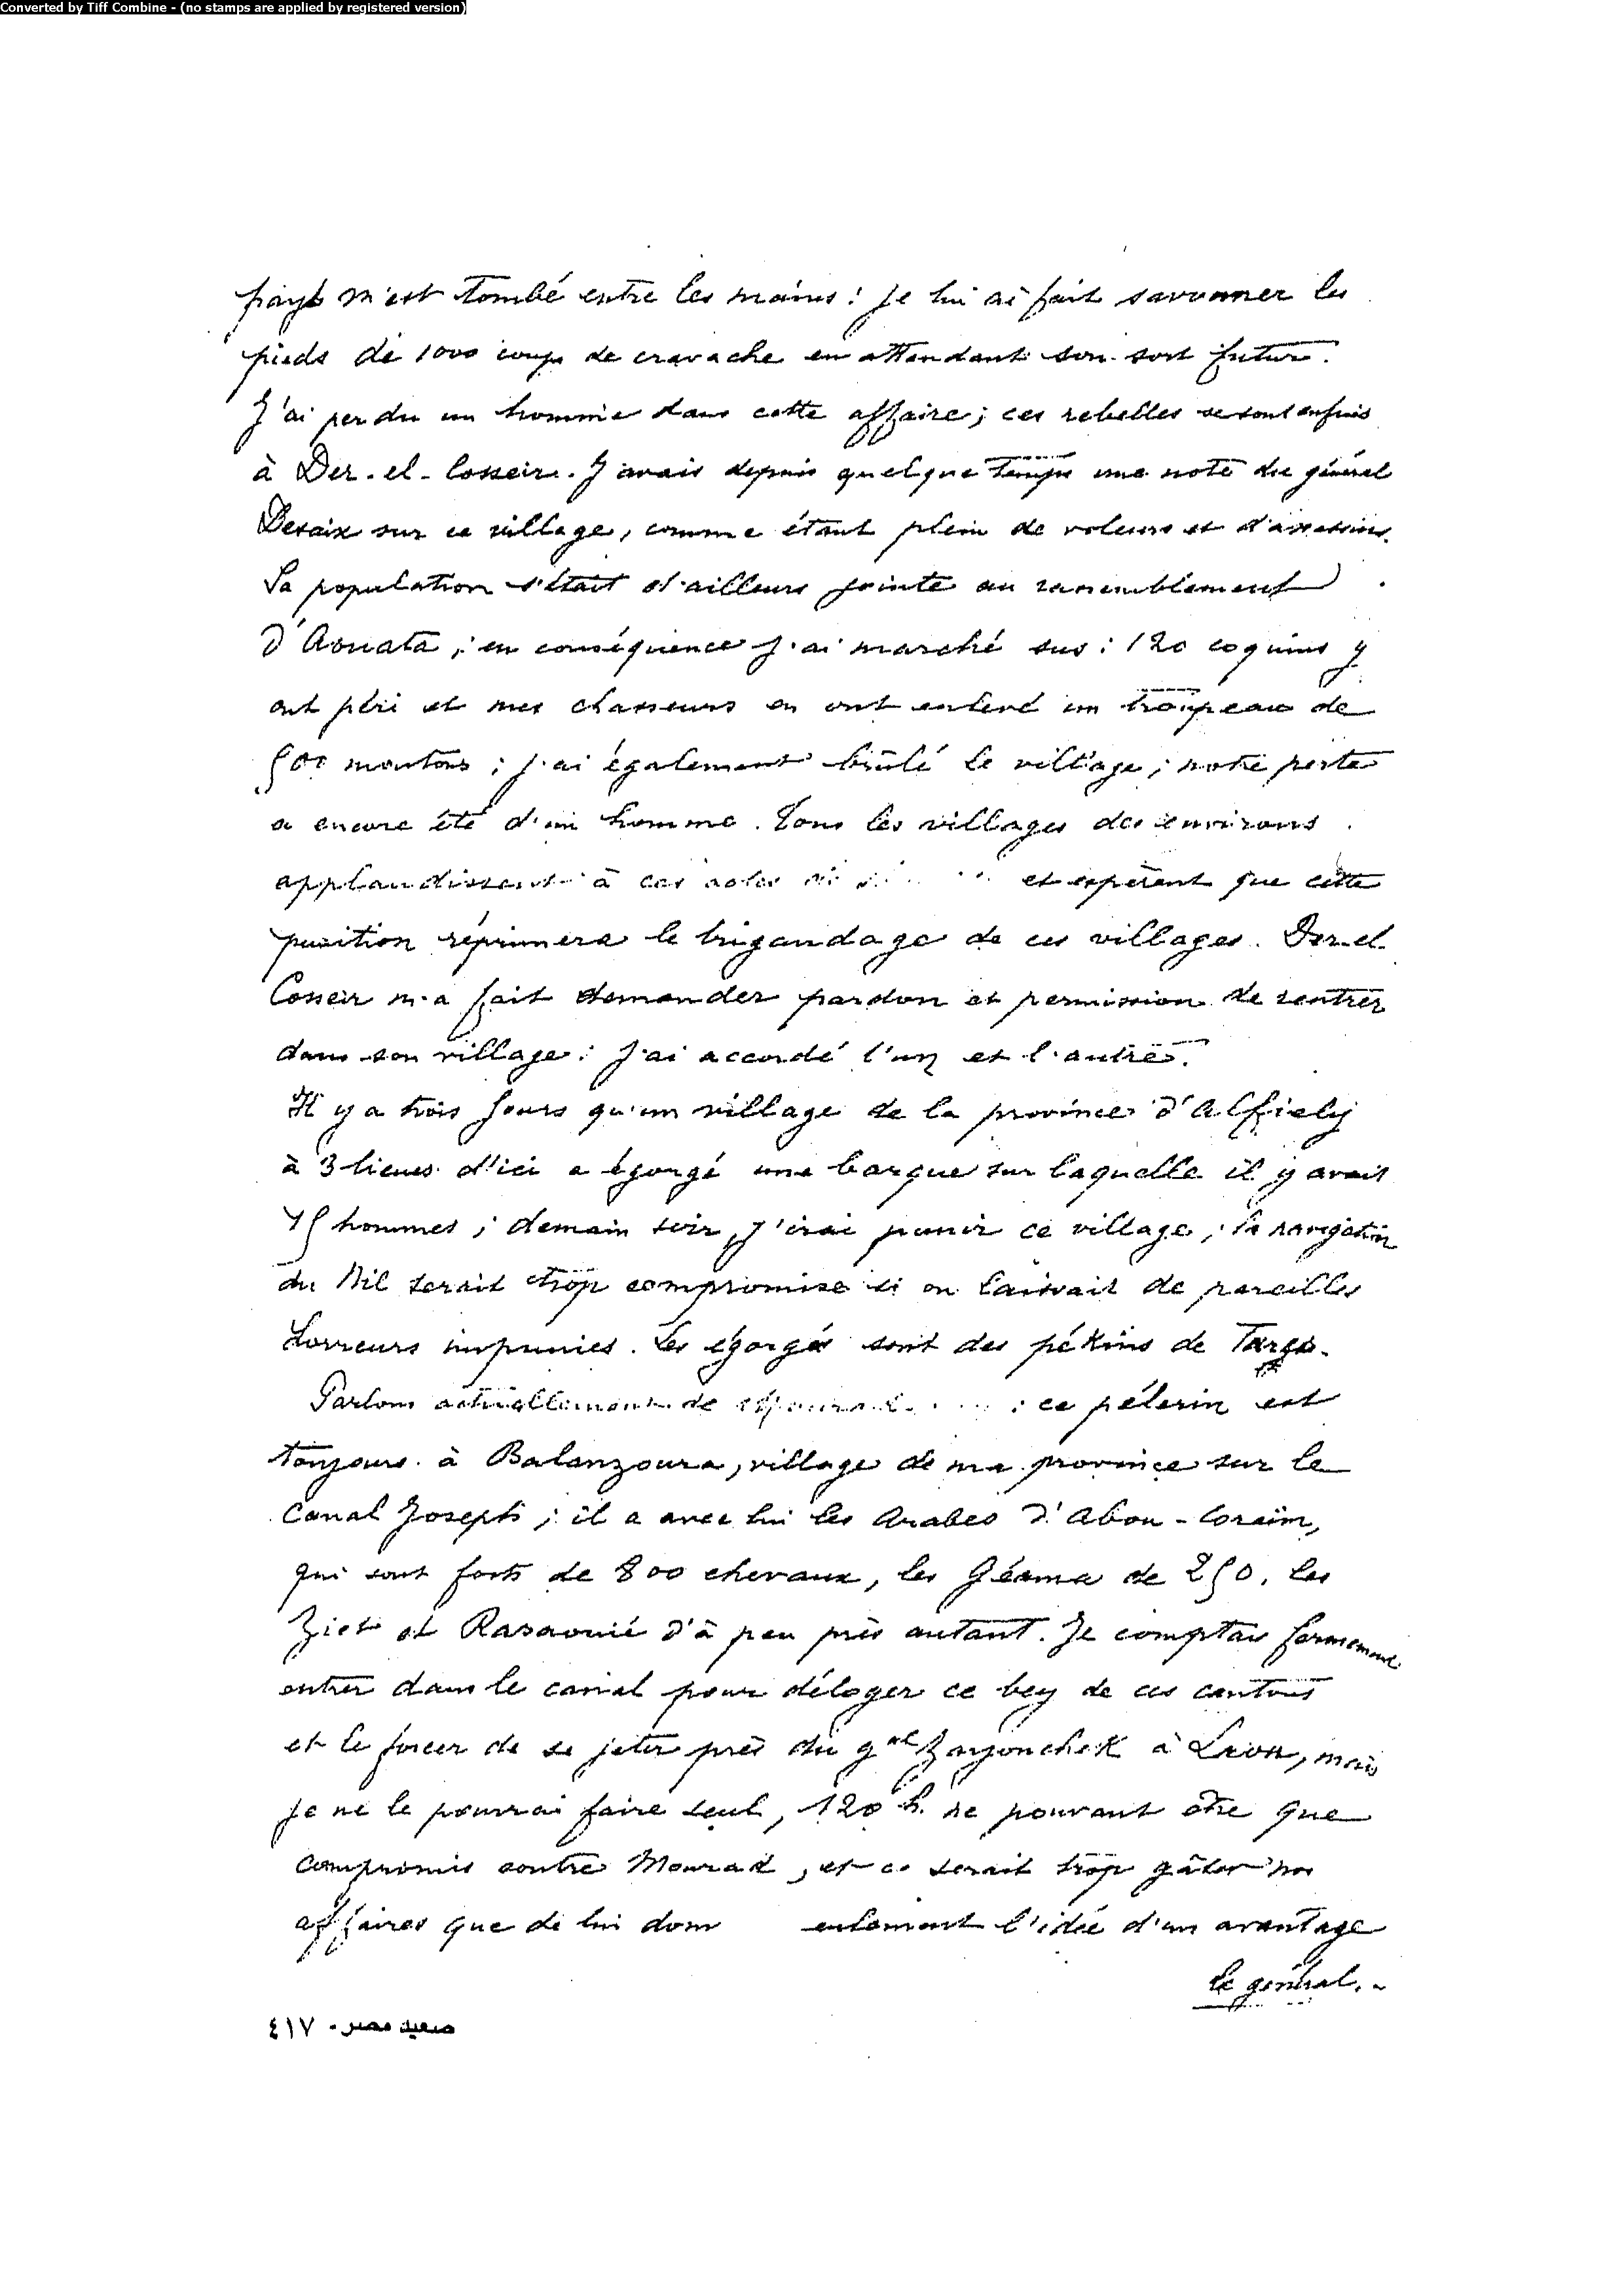 Converted by Tiff Combine - (no stamps are applied by registered version)
pays m'est tombé entre les mains : je lui ai fait savonner les
pieds de 1000 coups de cravache en attendant son sort futur.
J'ai perdu un homme dans cette affaire ; ces rebelles se sont enfuis
à Der-el-Cosseir. J'avais depuis quelque temps une note du général
Desaix sur ce village, comme étant plein de voleurs et d'assassins.
Sa population s'était d'ailleurs jointe au rassemblement
d'Aouata ; en conséquence j'ai marché sus : 120 coquins y
ont péri et mes chasseurs en ont enlevé un troupeau de
500 moutons ; j'ai également brûlé le village ; notre perte
a encore été d'un homme. Tous les villages des environs
applaudissent à ces actes et espèrent que cette
punition réprimera le brigandage de ces villages. Der-el-
Cosseir m'a fait demander pardon et permission de rentrer
dans son village : j'ai accordé l'un et l'autre.
Il y a trois jours qu'un village de la province d'Alfiely
à 3 lieues d'ici a égorgé une barque sur laquelle il y avait
hommes ; demain soir, j'irai punir ce village ; la navigation
du Nil serait trop compromise si on laissait de pareilles
horreurs impunies. Les égorgés sont des pékins de
Parlons actuellement de : ce pélerin est
toujours à Balanzoura, village de ma province sur le
Canal Joseph ; il a avec lui les Arabes d'Abou-Coraïm,
qui sont forts de 800 chevaux, les Géama de 250, les
Ziet et Rasaouié d'à peu près autant. Je comptais fermement
entrer dans le canal pour déloger ce bey de ces cantons
et le forcer de se jeter près du gal Zayonchek à mais
je ne le pourrai faire seul, 120 h. ne pouvant être que
compromis contre Mourad, et ce serait trop gâter nos
affaires que de lui donn eulement l'idée d'un avantage
le général. -
صعيد مصر - ٤١٧